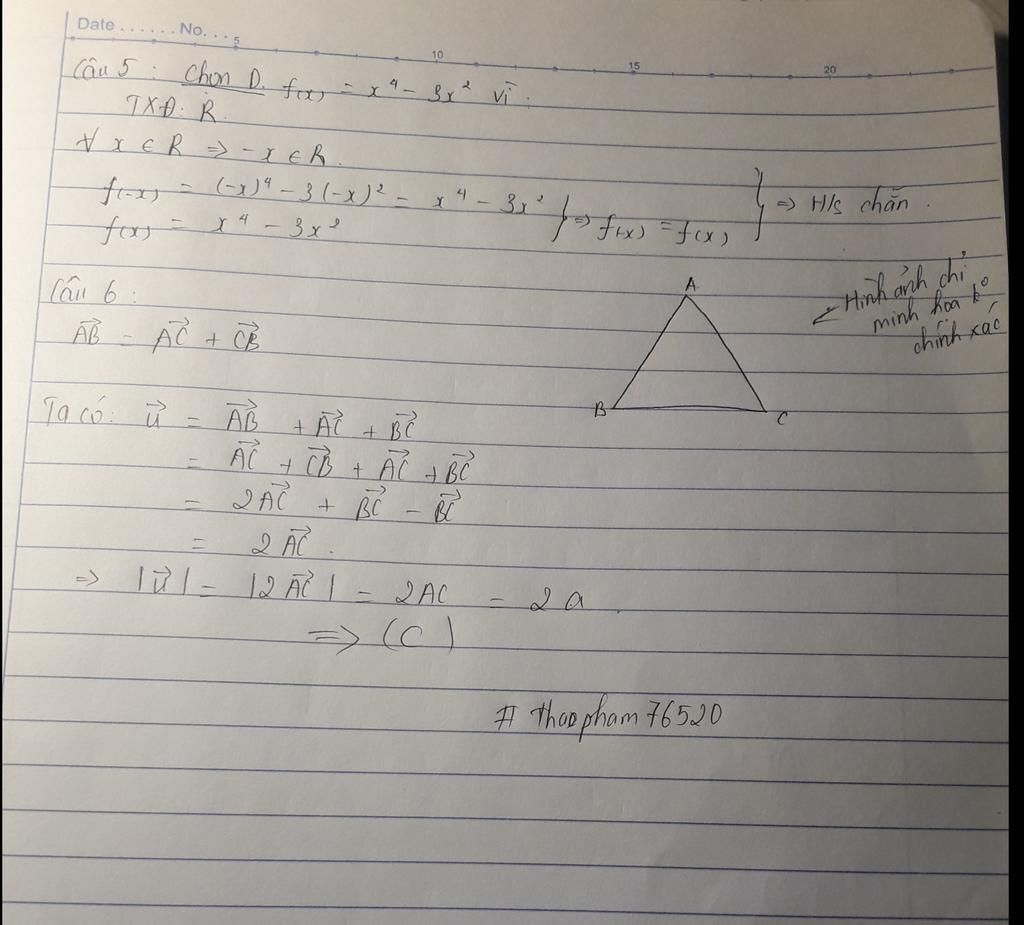 Date ...... No. ...
5 10 15 20
Câu 5 : Chọn D. f(x) = x⁴ - 3x² vì :
TXĐ: R.
∀ x ∈ R ⇒ -x ∈ R.
f(-x) = (-x)⁴ - 3(-x)² = x⁴ - 3x²
f(x) = x⁴ - 3x² } ⇒ f(-x) = f(x) } ⇒ H/s chẵn .
Câu 6 :
A
B
C
← Hình ảnh chỉ
minh họa ko
chính xác
\overrightarrow{AB} = \overrightarrow{AC} + \overrightarrow{CB}
Ta có: \overrightarrow{u} = \overrightarrow{AB} + \overrightarrow{AC} + \overrightarrow{BC}
= \overrightarrow{AC} + \overrightarrow{CB} + \overrightarrow{AC} + \overrightarrow{BC}
= 2\overrightarrow{AC} + \overrightarrow{BC} - \overrightarrow{BC}
= 2\overrightarrow{AC} .
⇒ |\overrightarrow{u}| = |2\overrightarrow{AC}| = 2AC = 2a .
⇒ (C)
# thaopham76520